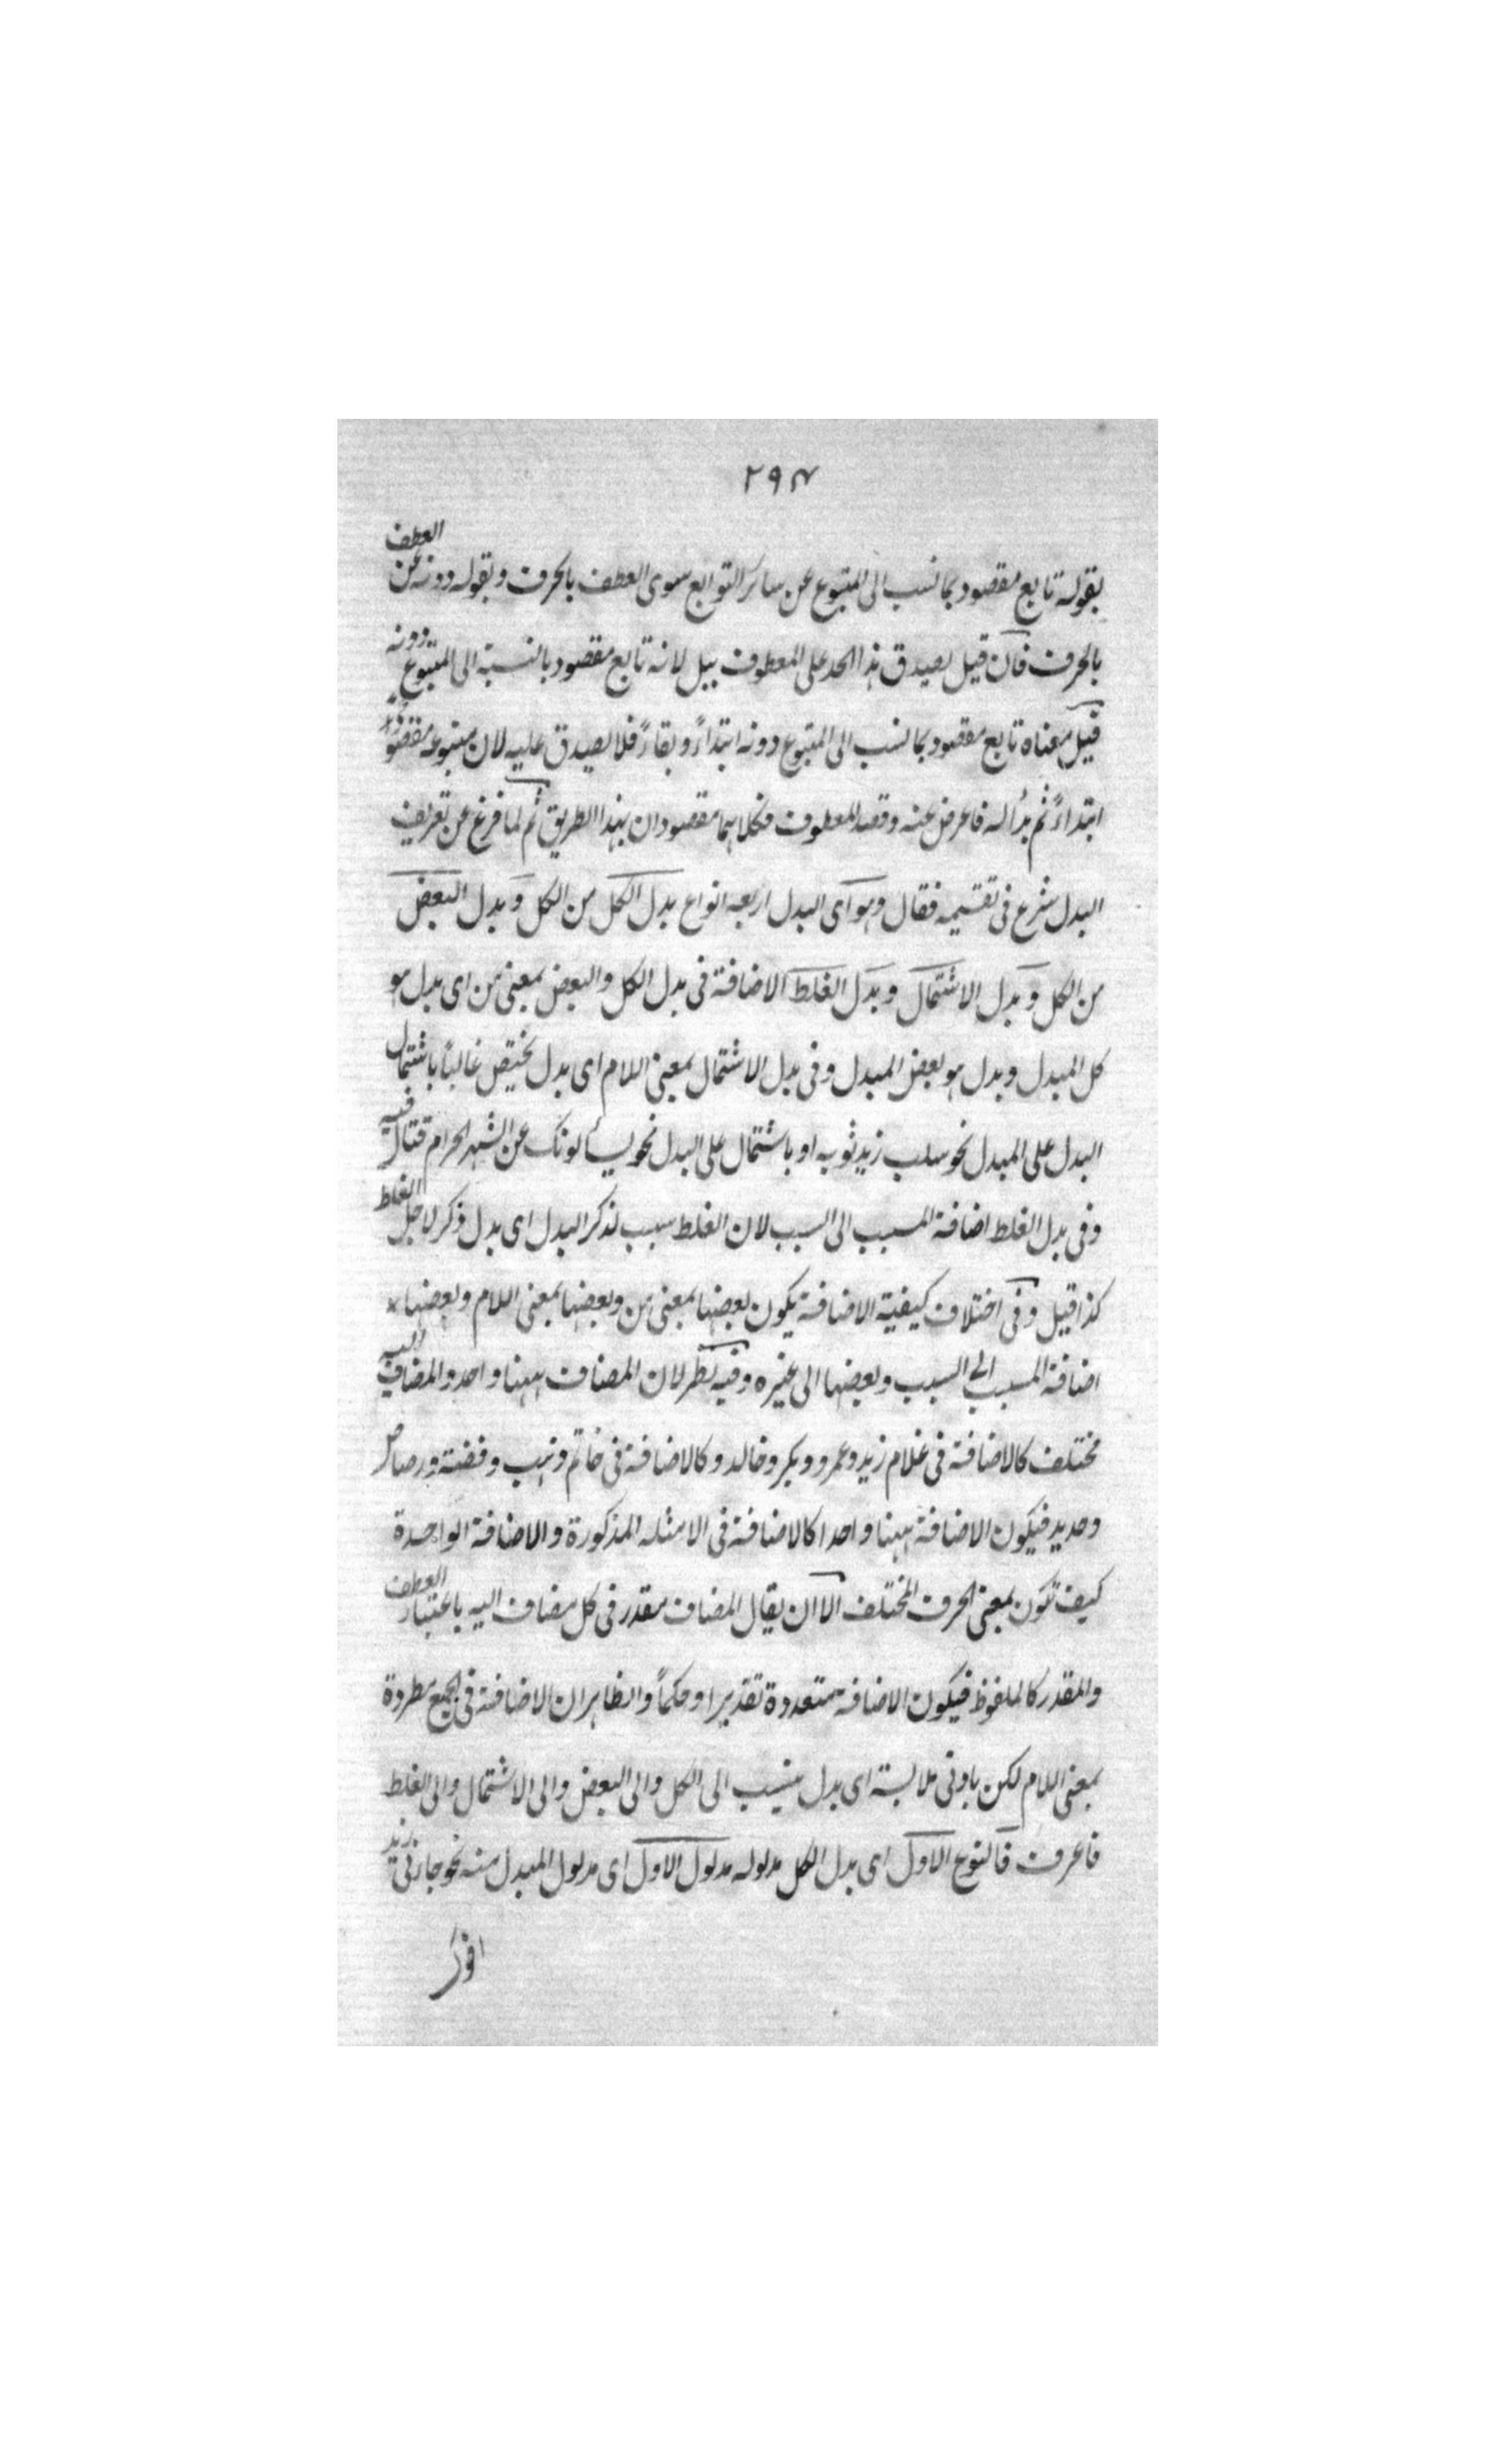 ٢٩٤
بقوله تابع مقصود بما نسب الى المتبوع عن سائر التوابع سوى العطف بالحرف وبقوله دونه عن العطف
بالحرف فان قيل يصدق هذا الحد على المعطوف ببل لانه تابع مقصود بالنسبة الى المتبوع دونه
قيل معناه تابع مقصود بما نسب الى المتبوع دونه ابتداءً وبقاءً فلا يصدق عليه لان متبوعه مقصود
ابتداءً ثم بدأ له فاعرض عنه وقصد المعطوف فكلاهما مقصودان بهذا الطريق ثم لما فرغ عن تعريف
البدل شرع فى تقسيمه فقال وهو اى البدل اربعه انواع بدل الكل من الكل و بدل البعض
من الكل و بدل الاشتمال و بدل الغلط الاضافة فى بدل الكل والبعض بمعنى من اى بدل هو
كل المبدل وبدل هو بعض المبدل وفى بدل الاشتمال بمعنى اللام اى بدل يختص غالباً باشتمال
البدل على المبدل نحو سلب زيد ثوبه او باشتمال على البدل نحو يسألونك عن الشهر الحرام قتال فيه
وفى بدل الغلط اضافة المسبب الى السبب لان الغلط سبب لذكر البدل اى بدل ذكر لاجل الغلط
كذا قيل وفى اختلاف كيفية الاضافة يكون بعضها بمعنى من وبعضها بمعنى اللام وبعضها
اضافة المسبب الى السبب وبعضها الى غيره وفيه نظر لان المضاف ههنا واحد والمضاف اليه
مختلف كالاضافة فى غلام زيد وعمرو وبكر وخالد وكالاضافة فى خاتم ذهب وفضة ورصاص
وحديد فيكون الاضافة ههنا واحدا كالاضافة فى الامثله المذكورة والاضافة الواحدة
كيف تكون بمعنى الحرف المختلف الا ان يقال المضاف مقدر فى كل مضاف اليه باعتبار العطف
والمقدر كالملفوظ فيكون الاضافة متعددة تقديرا وحكماً والظاهر ان الاضافة فى الجميع مطردة
بمعنى اللام لكن بادنى ملابسة اى بدل ينسب الى الكل والى البعض والى الاشتمال والى الغلط
فاعرف فالنوع الاول اى بدل الكل مدلوله مدلول الاول اى مدلول المبدل منه نحو جاءنى زيد
اخوك